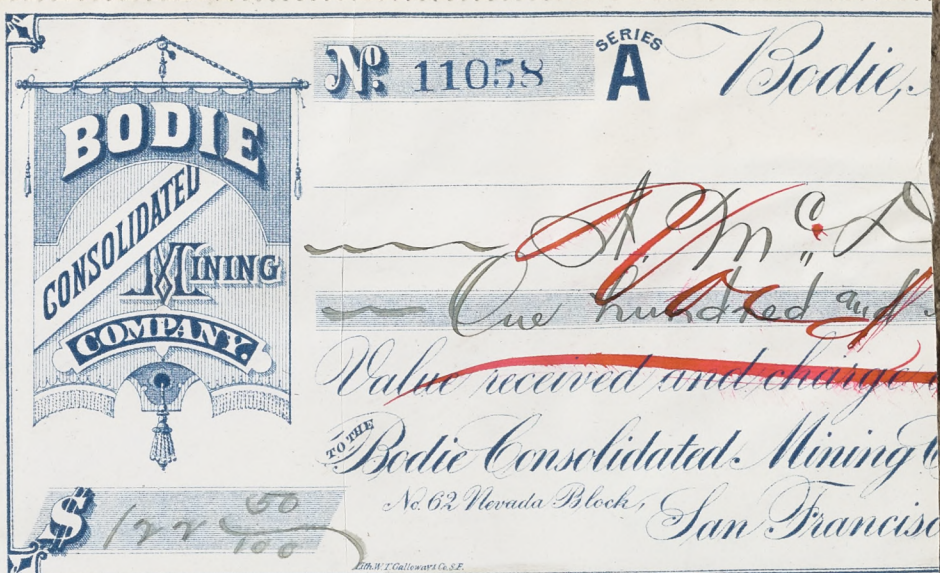 BODIE
CONSOLIDATED
MINING
COMPANY.
No. 11058
SERIES
A
Bodie,
A. Mc D
One hundred and
Value received and charge
TO THE
Bodie Consolidated Mining C
No. 62 Nevada Block,
San Francisc
$ 122 50/100
Lith. W.T. Galloway & Co. S.F.